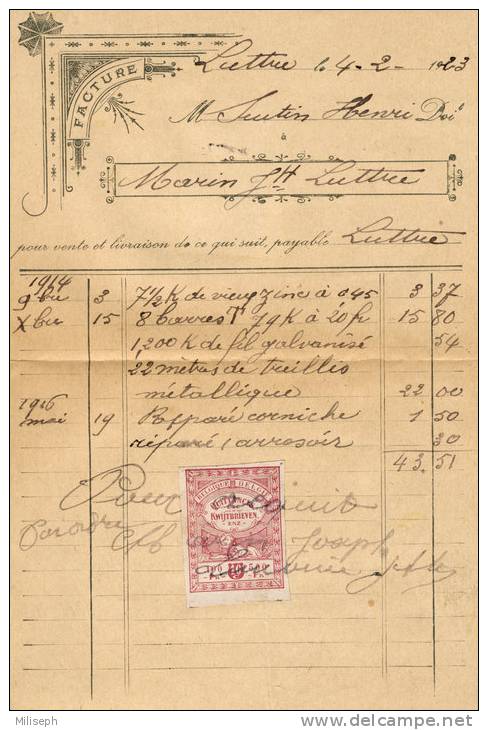 FACTURE
Luttre le 4-2- 1923
M Sentin Henri Doit
à
Marin Jh Luttre
pour vente et livraison de ce qui suit, payable Luttre
1914
9bre 3 7½ K de vieux zinc à 0,45 3 37
Xbre 15 8 barres T 79 K à 20 fr 15 80
1,200 K de fil galvanisé 54
22 mètres de treillis
métallique 22 00
1916
mai 19 Rapparé corniche 1 50
réparé 1 arrosoir 30
43.51
Pour acquit
Par ordre
Joseph
BELGIQUE BELGIË
KWIJTBRIEVEN
ENZ
10
© Miliseph
delcampe.net